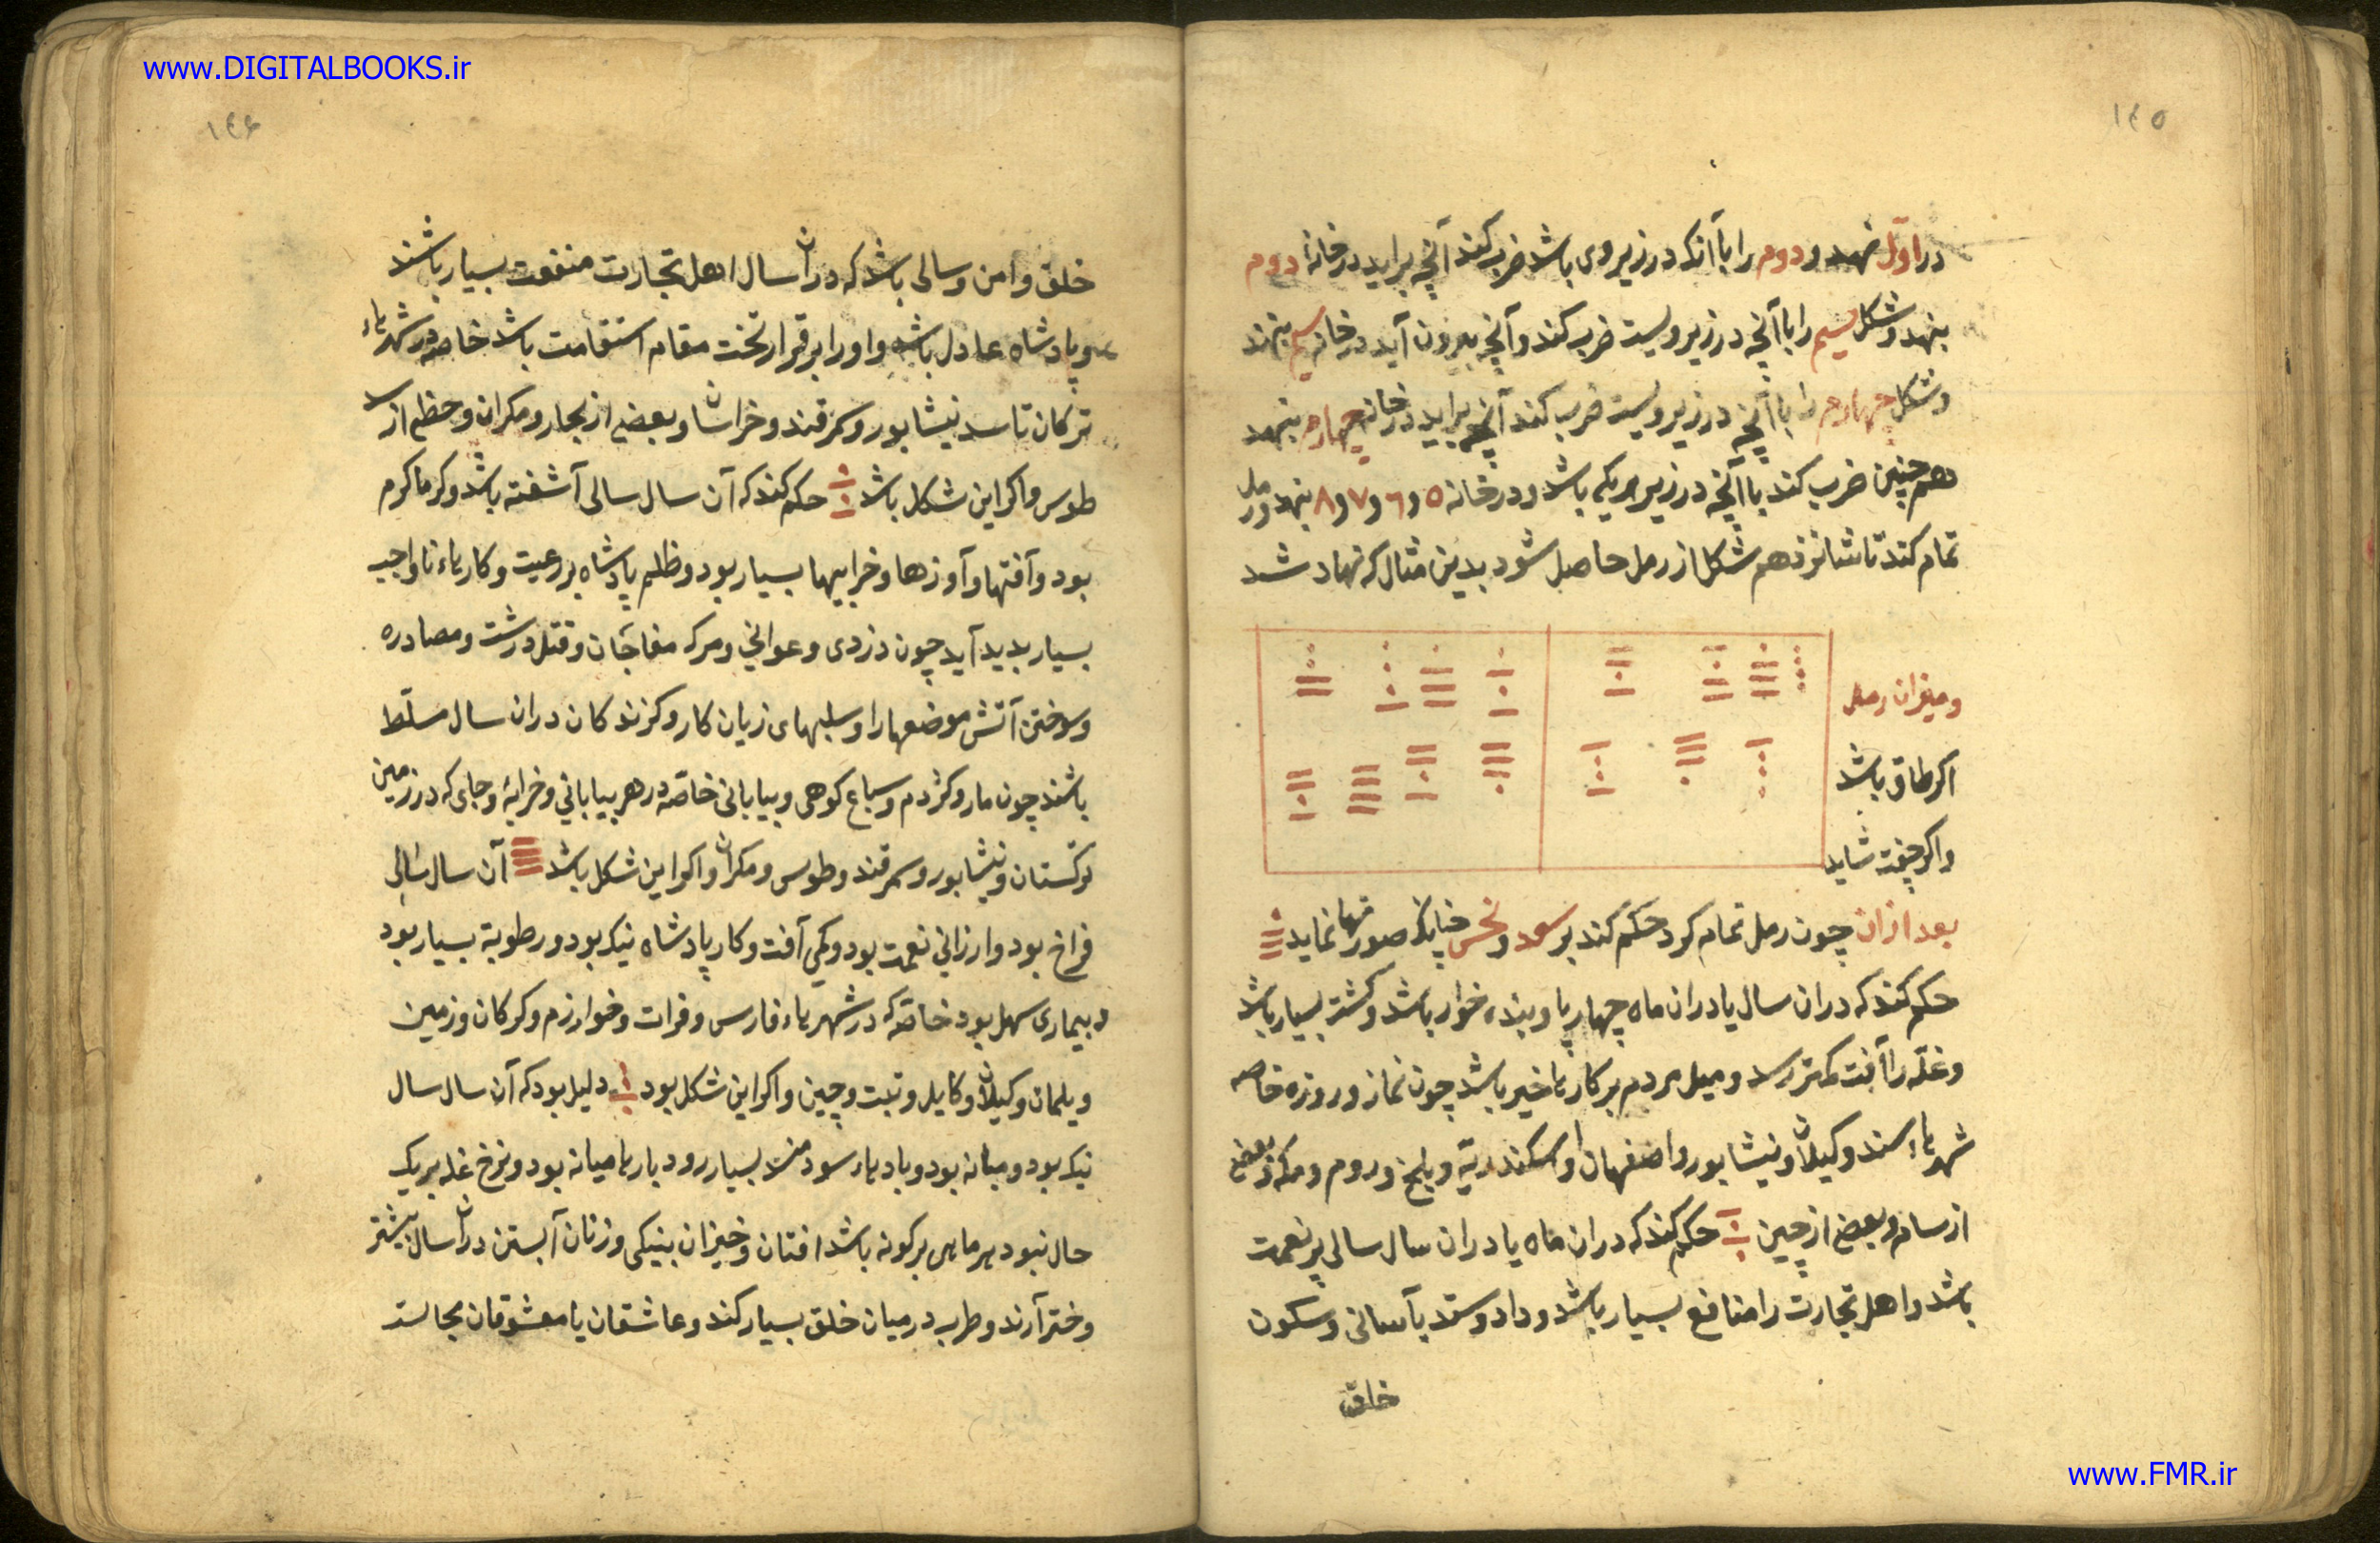 www.DIGITALBOOKS.ir
١٤٥
در اول نهد و دوم را با آنکه در زیر وی باشد ضرب کند آنچه براید در خانهٔ دوم
بنهد و شکل سیم را با آنچه در زیر ویست ضرب کند و آنچه بیرون آید در خانه سیم بنهند
و شکل چهارم را با آنچه در زیر ویست ضرب کند آنچه براید در خانه چهارم بنهد
همچنین ضرب کند با آنچه در زیر هریکی باشد و در خانه ٥ و ٦ و ٧ و ٨ بنهد و رمل
تمام کند تا شانزدهم شکل از رمل حاصل شود بدین مثال که نهاد شد
و میزان رمل
اکر طاق باشد
واکر جفت شاید
بعد ازان چون رمل تمام کرد حکم کند بر سعد و نحس چنانک صورتها نماید
حکم کند که دران سال یا دران ماه چهارپا و بنده خوار باشد و کشت بسیار باشد
و غله را آفت کمتر رسد و میل مردم بر کارهاء خیر باشد چون نماز و روزه خاصه
شهرهاء سند و کیلان و نیشابور و اصفهان و اسکندریّه و بلخ و روم و مکه و بعضی
از سام و بعضی از چین حکم کند که دران ماه یا دران سال سالی پر نعمت
باشد و اهل تجارت را منافع بسیار باشد و داد و ستد بآسانی و سکون
خلق
١٤۶
خلق و امن و سالی باشد که دران سال اهل تجارت منفعت بسیار باشند
و پادشاه عادل باشد و اورا برقرار تخت مقام استقامت باشد خاصه در شهرهاء
ترکان تا سد نیشابور و سمرقند و خراسان و بعضی از بخار و مکران و حظی از
طوس و اکر این شکل باشد حکم کند که آن سال سالی آشفته باشد و کرما کرم
بود و آفتها و آوزها و خرابیها بسیار بود و ظلم پادشاه بر رعیت و کارهاء ناواجب
بسیار بدید آید چون دزدی و عوانی و مرک مفاجات و قتل درشت و مصادره
و سوختن آتش موضعها را و سلبهای زیان کار و کزندکان دران سال مسلّط
باشند چون مار و کژدم و سباع کوهی و بیابانی خاصّه در هر بیابانی و خرابهٔ و جای که در زمین
ترکستان و نیشابور و سمرقند و طوس و مکران و اکر این شکل باشد آن سال سالی
فراخ بود و ارزانی نعمت بود و کمی آفت و کار پادشاه نیک بود و رطوبة بسیار بود
و بیماری سهل بود خاصّه که در شهرهاء فارس و فرات و خوارزم و کرکان و زمین
ویلمان و کیلان و کابل و تبت و چین و اکر این شکل بود دلیل بود که آن سال سال
نیک بود و میانه بود و بادهاء سودمند بسیار رود بارها میانه بود و نرخ غله بر یک
حال نبود هر ماهی بر کونه باشد افتان و خیزان بنیکی و زنان آبستن دران سال بیشتر
دختر آرند و طرب در میان خلق بسیار کند و عاشقان با معشوقان مجالست
www.FMR.ir